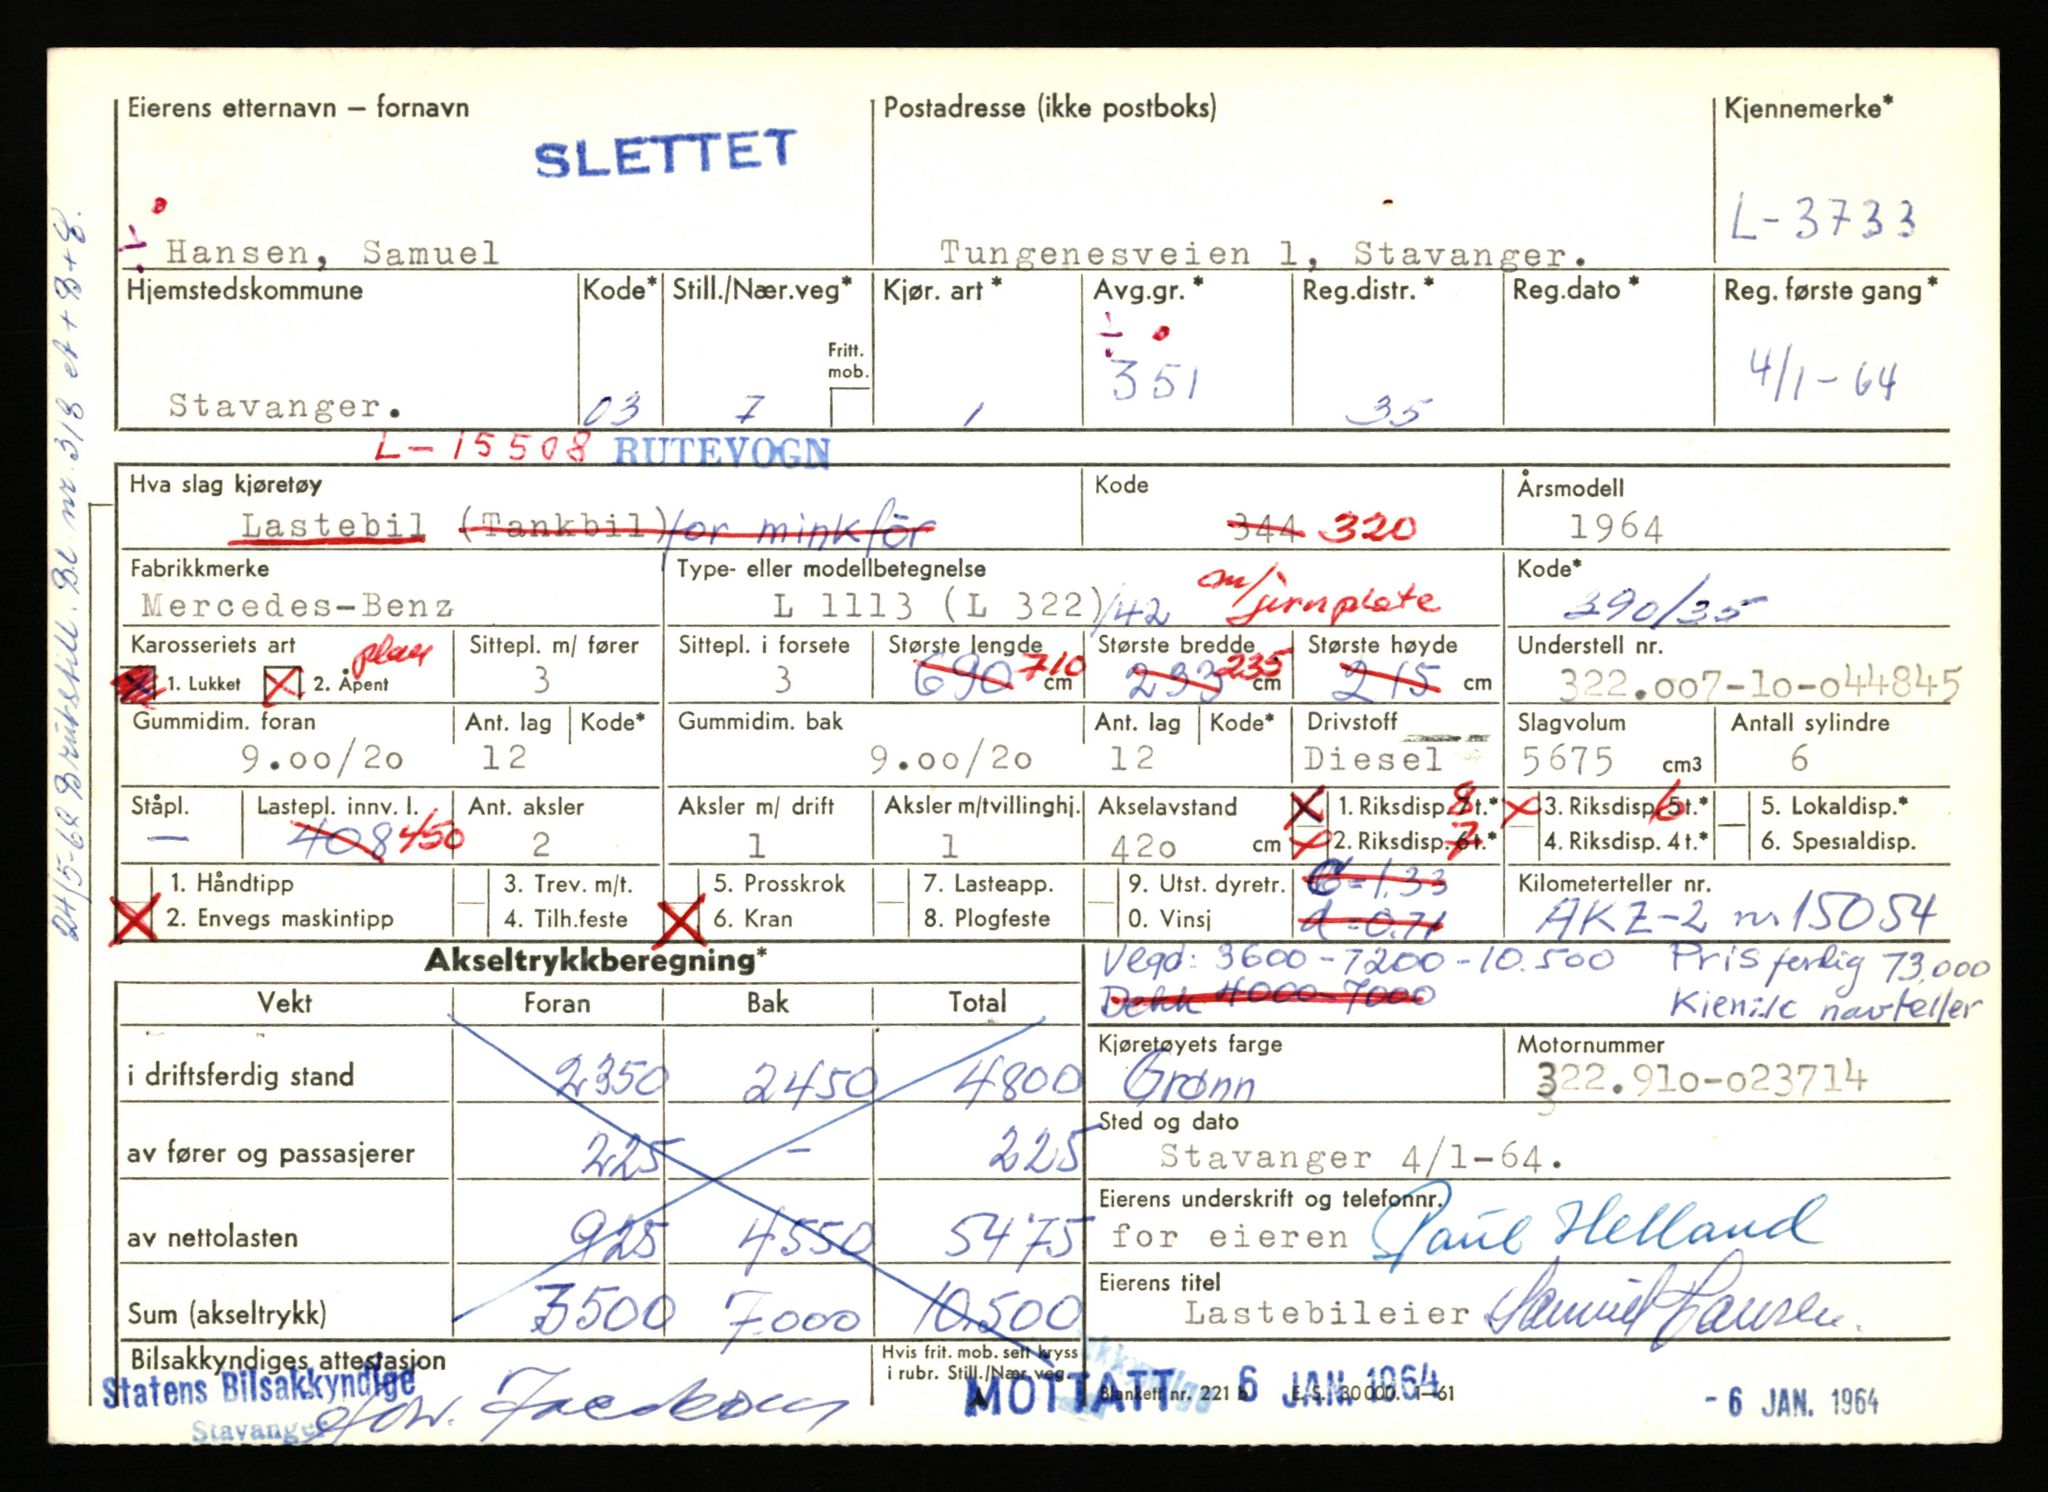 Eierens etternavn – fornavn
Postadresse (ikke postboks)
Kjennemerke*
SLETTET
Hansen, Samuel
Tungenesveien 1, Stavanger.
L-3733
Hjemstedskommune Kode* Still./Nær.veg* Kjør. art* Avg.gr.* Reg.distr.* Reg.dato* Reg. første gang*
Fritt. mob.
Stavanger. 03 7 1 351 35 4/1-64
L-15508 RUTEVOGN
Hva slag kjøretøy Kode Årsmodell
Lastebil (Tankbil) for minkfôr 344 320 1964
Fabrikkmerke Type- eller modellbetegnelse Kode*
Mercedes-Benz L 1113 (L 322)/42 m/jernplate 390/35
Karosseriets art Sittepl. m/ fører Sittepl. i forsete Største lengde Største bredde Største høyde Understell nr.
1. Lukket 2. Åpent plan 3 3 690 710 cm 233 235 cm 215 cm 322.007-10-044845
Gummidim. foran Ant. lag Kode* Gummidim. bak Ant. lag Kode* Drivstoff Slagvolum Antall sylindre
9.00/20 12 9.00/20 12 Diesel 5675 cm3 6
Ståpl. Lastepl. innv. l. Ant. aksler Aksler m/ drift Aksler m/tvillinghj. Akselavstand 1. Riksdisp. 8 t.* 3. Riksdisp. 5t.* 6 5. Lokaldisp.*
– 408 450 2 1 1 420 cm 2. Riksdisp. 6t.* 7 4. Riksdisp. 4t.* 6. Spesialdisp.
1. Håndtipp 3. Trev. m/t. 5. Prosskrok 7. Lasteapp. 9. Utst. dyretr. C=1.33 Kilometerteller nr.
2. Envegs maskintipp 4. Tilh.feste 6. Kran 8. Plogfeste 0. Vinsj d=0.71 AKZ-2 nr 15054
Akseltrykkberegning*
Vegd: 3600-7200-10.500 Pris ferdig 73.000
Dekk 4000-7000 Kienzle navteller
Vekt Foran Bak Total
Kjøretøyets farge Motornummer
i driftsferdig stand 2350 2450 4800
Grønn 322.910-023714
Sted og dato
av fører og passasjerer 225 – 225
Stavanger 4/1-64.
Eierens underskrift og telefonnr.
av nettolasten 925 4550 5475
for eieren Paul Helland
Eierens titel
Sum (akseltrykk) 3500 7.000 10.500
Lastebileier Samuel Hansen.
Bilsakkyndiges attestasjon
Hvis frit. mob. sett kryss
i rubr. Still./Nær.veg.
Statens Bilsakkyndige
Stavanger
MOTTATT 6 JAN. 1964
Blankett nr. 221 b E. S. 30000. 1-61
- 6 JAN. 1964
24/5-68 Brukstill. Bl. nr. 318 et + B + E.